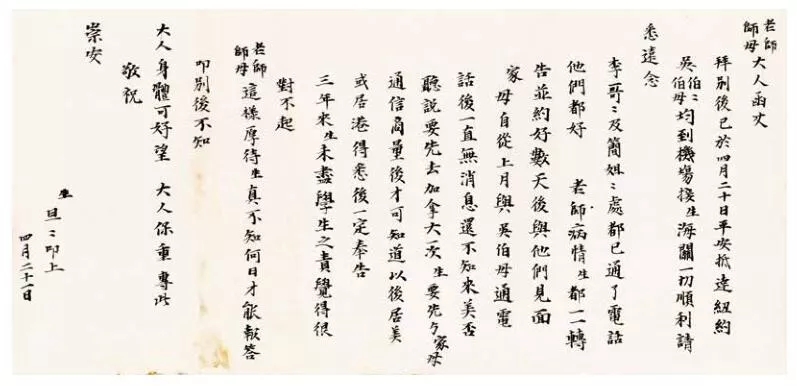 老師師母大人函丈
拜別後已於四月二十日平安抵達紐約
吳伯〻伯母均到機場接生海關一切順利請
悉遠念
李哥〻及簡姐〻處都已通了電話
他們都好 老師病情生都一一轉
告並約好數天後與他們見面
家母自從上月與吳伯母通電
話後一直無消息還不知來美否
聽説要先去加拿大一次生要先与家母
通信商量後才可知道以後居美
或居港得悉後一定奉告
三年來生未盡學生之責覺得很
對不起
老師師母這樣厚待生真不知何日才能報答
叩別後不知
大人身體可好望 大人保重 專此
敬祝
崇安
生旦〻叩上
四月二十一日